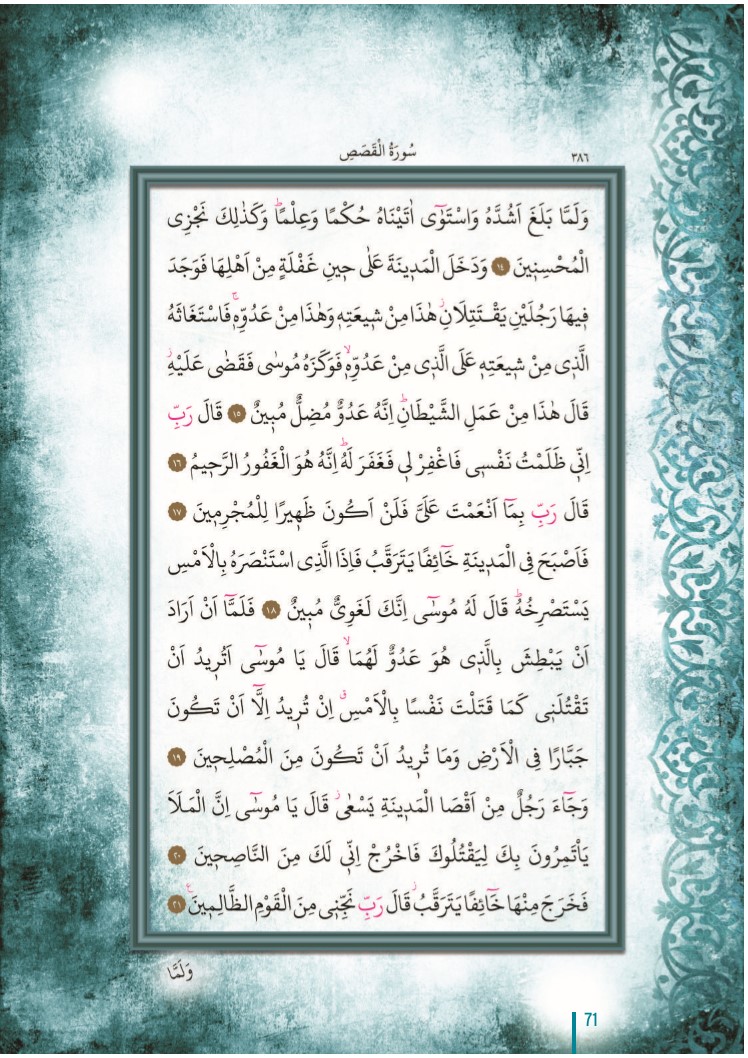 ٣٨٦ سُورَةُ الْقَصَصِ
وَلَمَّا بَلَغَ اَشُدَّهُ وَاسْتَوٰٓى اٰتَيْنَاهُ حُكْمًا وَعِلْمًاۜ وَكَذٰلِكَ نَجْزِى
الْمُحْسِنٖينَ ﴿١٤﴾ وَدَخَلَ الْمَدٖينَةَ عَلٰى حٖينِ غَفْلَةٍ مِنْ اَهْلِهَا فَوَجَدَ
فٖيهَا رَجُلَيْنِ يَقْتَتِلَانِۘ هٰذَا مِنْ شٖيعَتِهٖ وَهٰذَا مِنْ عَدُوِّهٖۚ فَاسْتَغَاثَهُ
الَّذٖى مِنْ شٖيعَتِهٖ عَلَى الَّذٖى مِنْ عَدُوِّهٖۙ فَوَكَزَهُ مُوسٰى فَقَضٰى عَلَيْهِۘ
قَالَ هٰذَا مِنْ عَمَلِ الشَّيْطَانِۜ اِنَّهُ عَدُوٌّ مُضِلٌّ مُبٖينٌ ﴿١٥﴾ قَالَ رَبِّ
اِنّٖى ظَلَمْتُ نَفْسٖى فَاغْفِرْ لٖى فَغَفَرَ لَهُۜ اِنَّهُ هُوَ الْغَفُورُ الرَّحٖيمُ ﴿١٦﴾
قَالَ رَبِّ بِمَٓا اَنْعَمْتَ عَلَىَّ فَلَنْ اَكُونَ ظَهٖيرًا لِلْمُجْرِمٖينَ ﴿١٧﴾
فَاَصْبَحَ فِى الْمَدٖينَةِ خَٓائِفًا يَتَرَقَّبُ فَاِذَا الَّذِى اسْتَنْصَرَهُ بِالْاَمْسِ
يَسْتَصْرِخُهُۜ قَالَ لَهُ مُوسٰٓى اِنَّكَ لَغَوِىٌّ مُبٖينٌ ﴿١٨﴾ فَلَمَّٓا اَنْ اَرَادَ
اَنْ يَبْطِشَ بِالَّذٖى هُوَ عَدُوٌّ لَهُمَاۙ قَالَ يَا مُوسٰٓى اَتُرٖيدُ اَنْ
تَقْتُلَنٖى كَمَا قَتَلْتَ نَفْسًا بِالْاَمْسِۗ اِنْ تُرٖيدُ اِلَّٓا اَنْ تَكُونَ
جَبَّارًا فِى الْاَرْضِ وَمَا تُرٖيدُ اَنْ تَكُونَ مِنَ الْمُصْلِحٖينَ ﴿١٩﴾
وَجَٓاءَ رَجُلٌ مِنْ اَقْصَا الْمَدٖينَةِ يَسْعٰىۘ قَالَ يَا مُوسٰٓى اِنَّ الْمَلَاَ
يَاْتَمِرُونَ بِكَ لِيَقْتُلُوكَ فَاخْرُجْ اِنّٖى لَكَ مِنَ النَّاصِحٖينَ ﴿٢٠﴾
فَخَرَجَ مِنْهَا خَٓائِفًا يَتَرَقَّبُۘ قَالَ رَبِّ نَجِّنٖى مِنَ الْقَوْمِ الظَّالِمٖينَ ﴿٢١﴾
وَلَمَّا
71